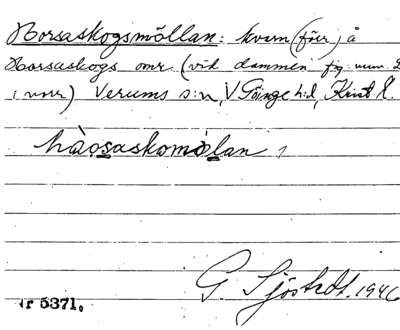 Horsaskogsmöllan: kvarn (förr) å
Horsaskogs omr (vid dammen fig: num. 2
i norr) Verums s:n, V Göinge h:d, Krist l.
hàosaskomö̀lan,
G. Sjöstedt. 1946
nr 5371.